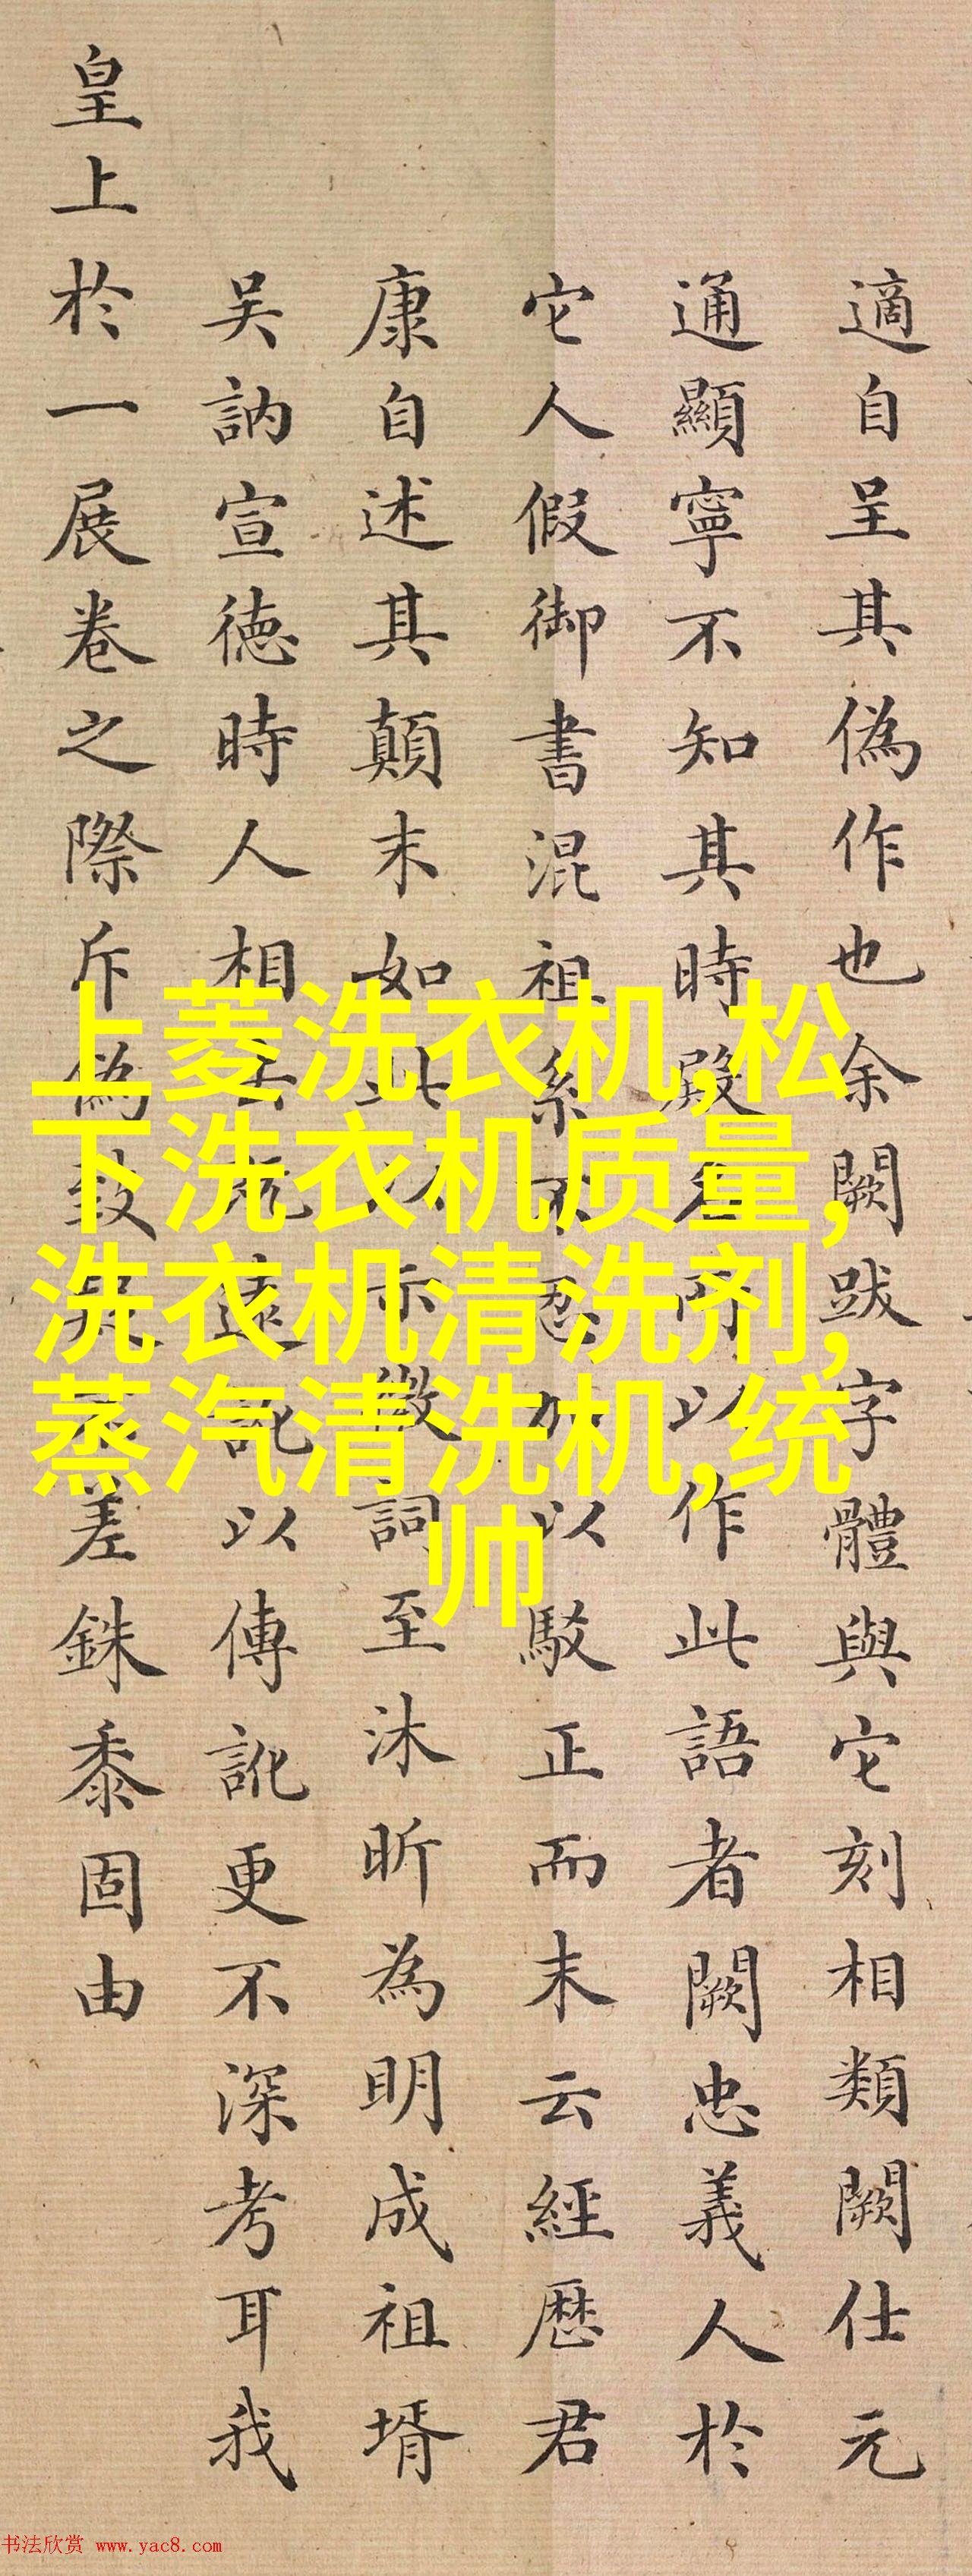 適自呈其偽作也余闕跋字體與它刻相類闕仕元
通顯寧不知其時殿以作此語者闕忠義人於
它人假御書混祖系不忍加以駁正而末云經歴君
康自述其顛末如此以示徵詞至沐昕為明成祖壻
吳訥宣徳時人相去既遠訛以傳訛更不深考耳我
皇上於一展卷之際斥偽致差銖黍固由
上菱洗衣机,松
下洗衣机质量,
洗衣机清洗剂,
蒸汽清洗机,统
帅
书法欣赏 www.yac8.com